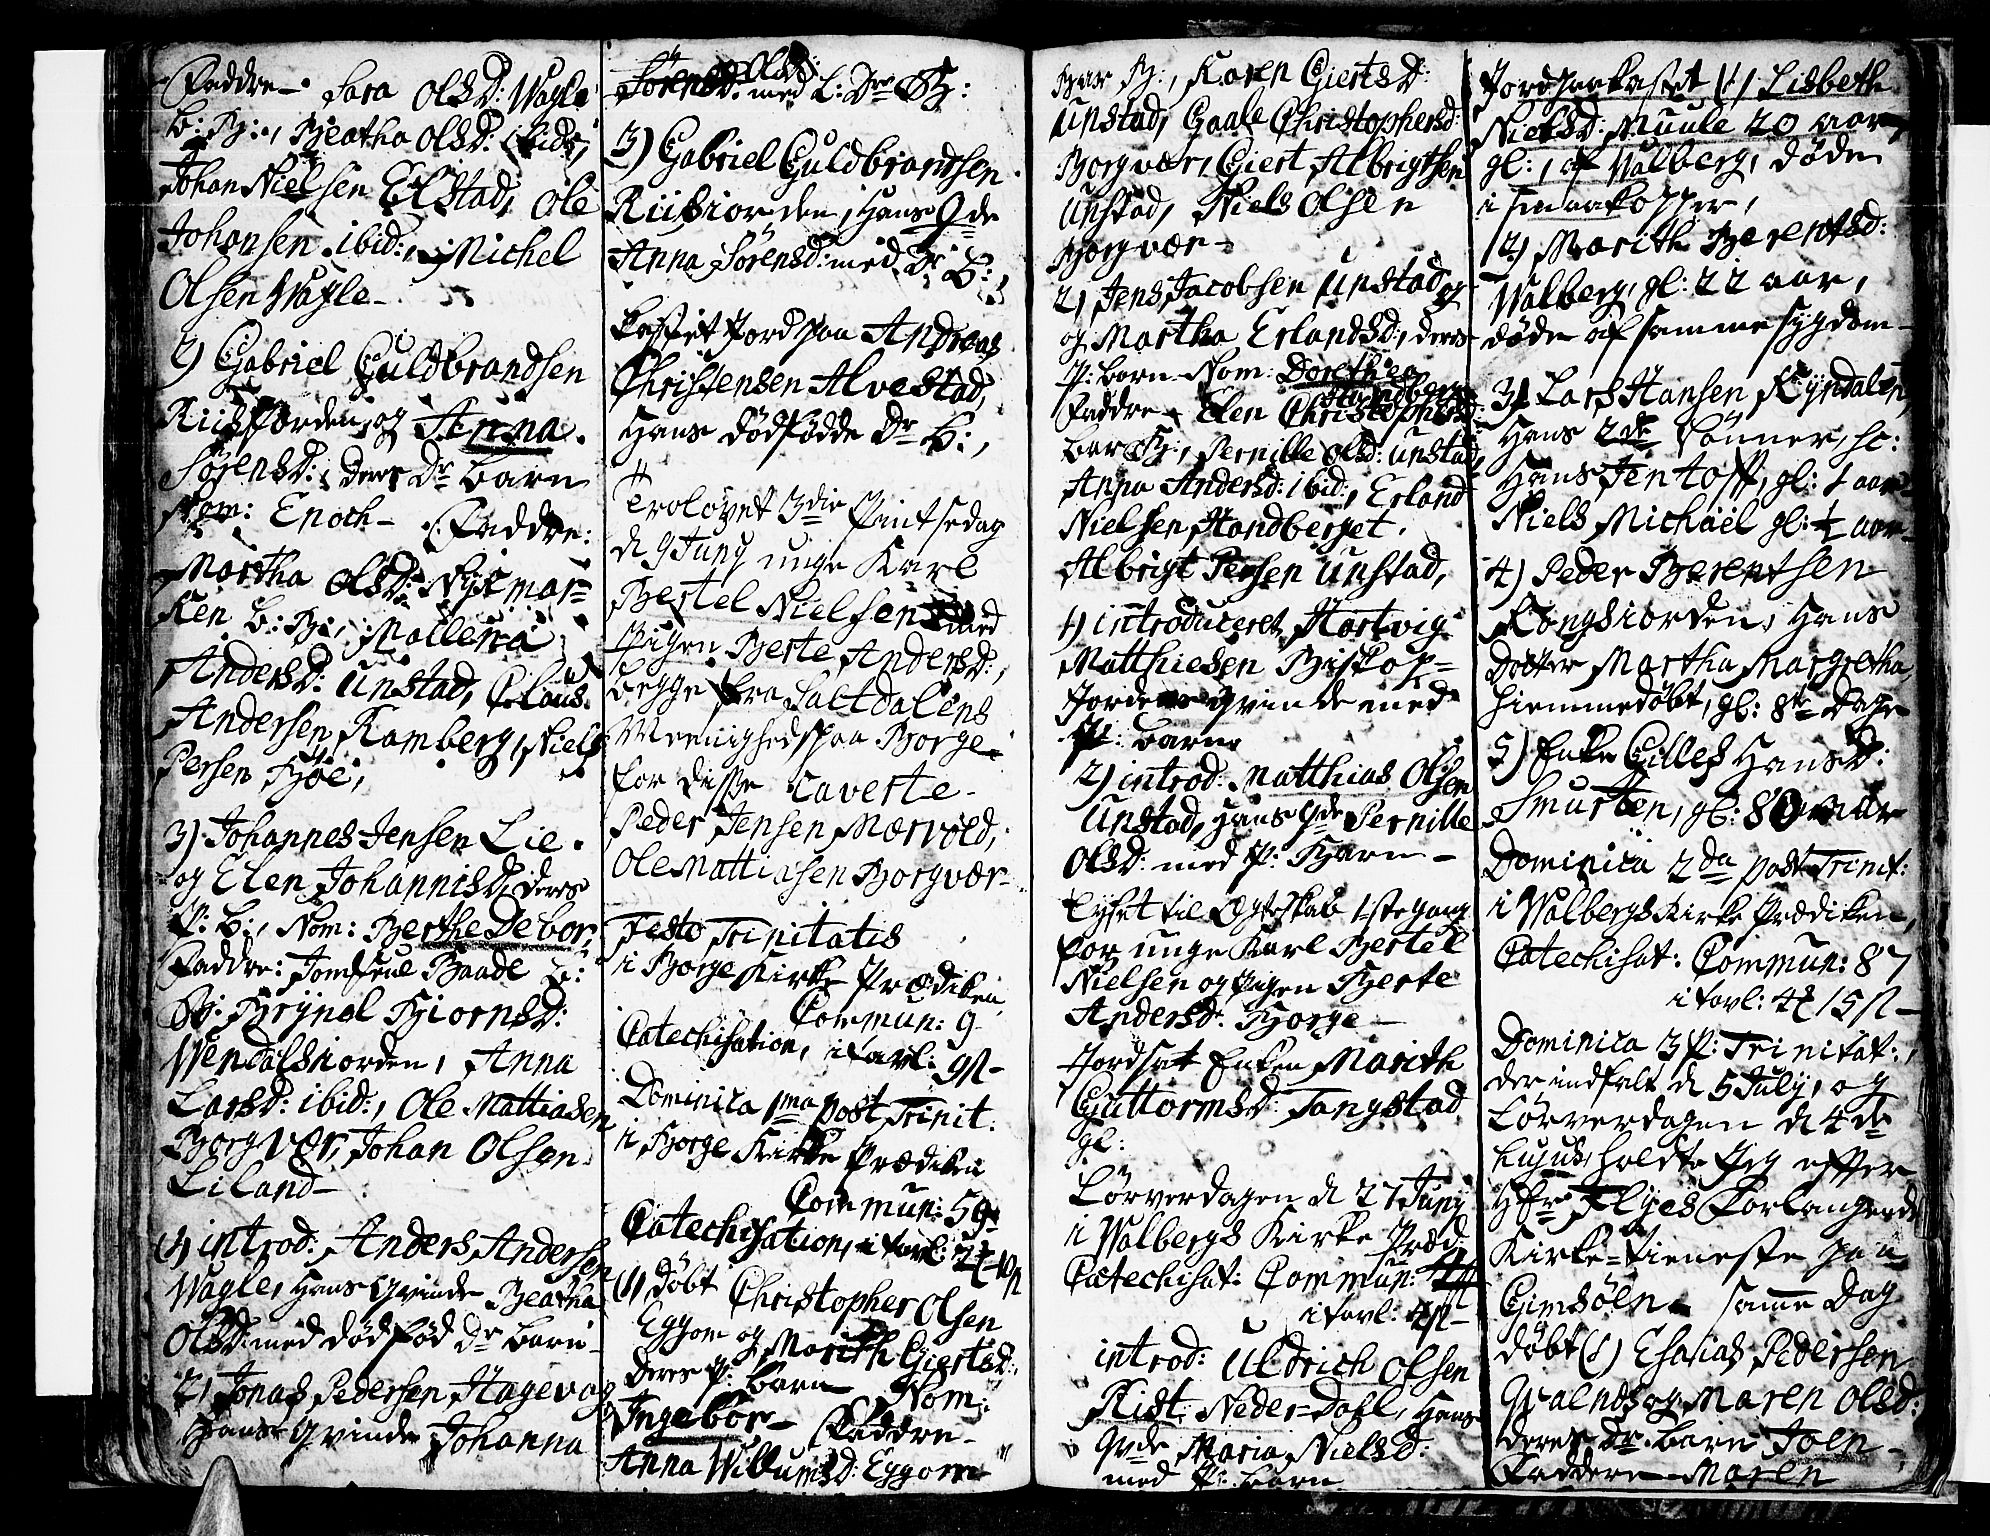 Faddre. Sara Olsd: Wagle
b: B:, Beatha Olsd: ibid:,
Johan Nielsen Eilstad, Ole
Johansen ibid:, Michel
Olsen Wagle
2) Gabriel Guldbrandsen
Riisfiorden og Anna
Sørensd: deres Dr barn
Nom: Enoch. Faddre:
Martha Olsd: Nykmar=
ken b: B:, Mallena
Andersd: Unstad, Claus
Andersen Ramberg, Niels
Persen Bøe,
3) Johannes Jensen Lie
og Elen Johannisd, deres
P: b:, Nom: Berthe Debor,
Faddre: Jomfrue Baade b:
B: Brynel Biornsd:
Wendalsiorden, Anna
Larsd: ibid:, Ole Mattiasen
Borgvær, Johan Olsen
Liland
1) introd: Anders Andersen
Wagle, Hans Qvinde Beatha
Olsd: med dødfød Dr barn
2) Jonas Pedersen Hagevog
Hans Qvinde Johanna
Olsd:
Sørensd: med l: Dr B:
3) Gabriel Guldbrandsen
Riisfiorden, Hans Qde
Anna Sørensd: med Dr B:,
kastet Jord paa Andreas
Christensen Alvestad,
Hans dødfødde Dr B:,
Trolovet 3die Pintsedag
d 9 Juny unge Karl
Bertel Nielsen med
Pigen Berte Andersd:,
begge fra Saltdalens
Meenighed paa Borge
for disse caverte
Peder Jensen Mærvold,
Ole Mattiasen Borgvær
Festo Trinitatis
i Borge Kirke Prædiken
Commun: 9
Catechisation, i tavl:
Dominica 1ma post Trinit:
i Borge Kirke Prædiken
Commun: 59
Catechisation, i tavl:
(1) døbt Christopher Olsen
Eggom og Marith Giertsd:
deres P: barn Nom:
Ingebor Faddre
Anna Willumsd: Eggom
bar B:, Karen Giertsd:
Unstad, Gaale Christophersd:
Borgvær, Giert Albrigtsen
Unstad, Niels Olsen
Borgvær
2) Jens Jacobsen Unstad og
og Martha Erlandsd:, deres
P: barn Nom: Dorethea
Faddre Elen Christophersd:
bar B:, Pernille Olsd: Unstad,
Anna Andersd: ibid:, Erland
Nielsen Handberget.
Albrigt Persen Unstad,
1) introduceret Hartvig
Matthiesen Biskop=
Jordens Qvinde med
P: barn
2) introd: Matthias Olsen
Unstad, Hans Qde Pernille
Olsd: med P: Barn
Lyset til Ægteskab 1ste gang
for unge Karl Bertel
Nielsen og Pigen Berte
Andersd: Borge
Jordsat Enken Marith
Guttormsd: Tangstad
gl:
Løverdagen d 27 Juny
i Walbergs Kirke Præd
Catechisat: Commun:
i tavl:
introd: Uldrich Olsen
Rist: Neder=Dahl, Hans
Qvde Maria Nielsd:
med P: barn
Jordpaakastet (1) Lisbeth
Nielsd: Muule 20 aar
gl:, af Walberg, døde
i smaakopper,
2) Marith Berentsd:
Walberg, gl: 22 aar,
døde af samme sygdom
3) Lars Hansen Kyndalen,
Hans 2de Sønner, sc:
Hans Jentoft, gl: 1 aar
Niels Michaël gl: ½ aar
4) Peder Berentsen
Kongsiorden, Hans
Dotter Martha Margretha,
hiemmedøbt, gl: 8te Dage
5) Enke Gilles Hansd:
Smurten, gl: 80 aar
Dominica 2da post Trinit:
i Walbergs Kirke Prædiken,
Catechisat: Commun: 87
i tavl:
Dominica 3 P: Trinitat:,
der indfalt d 5 July, og
Løverdagen d 4de
hujus, holdte Jeg efter
Hr Flyes Forlangende
Kirke=tieneste paa
Gimsøen. Samme Dag
døbt (1) Esaias Pedersen
Qvalnds og Maren Olsd:
deres Dr barn Joen
Faddere Maren